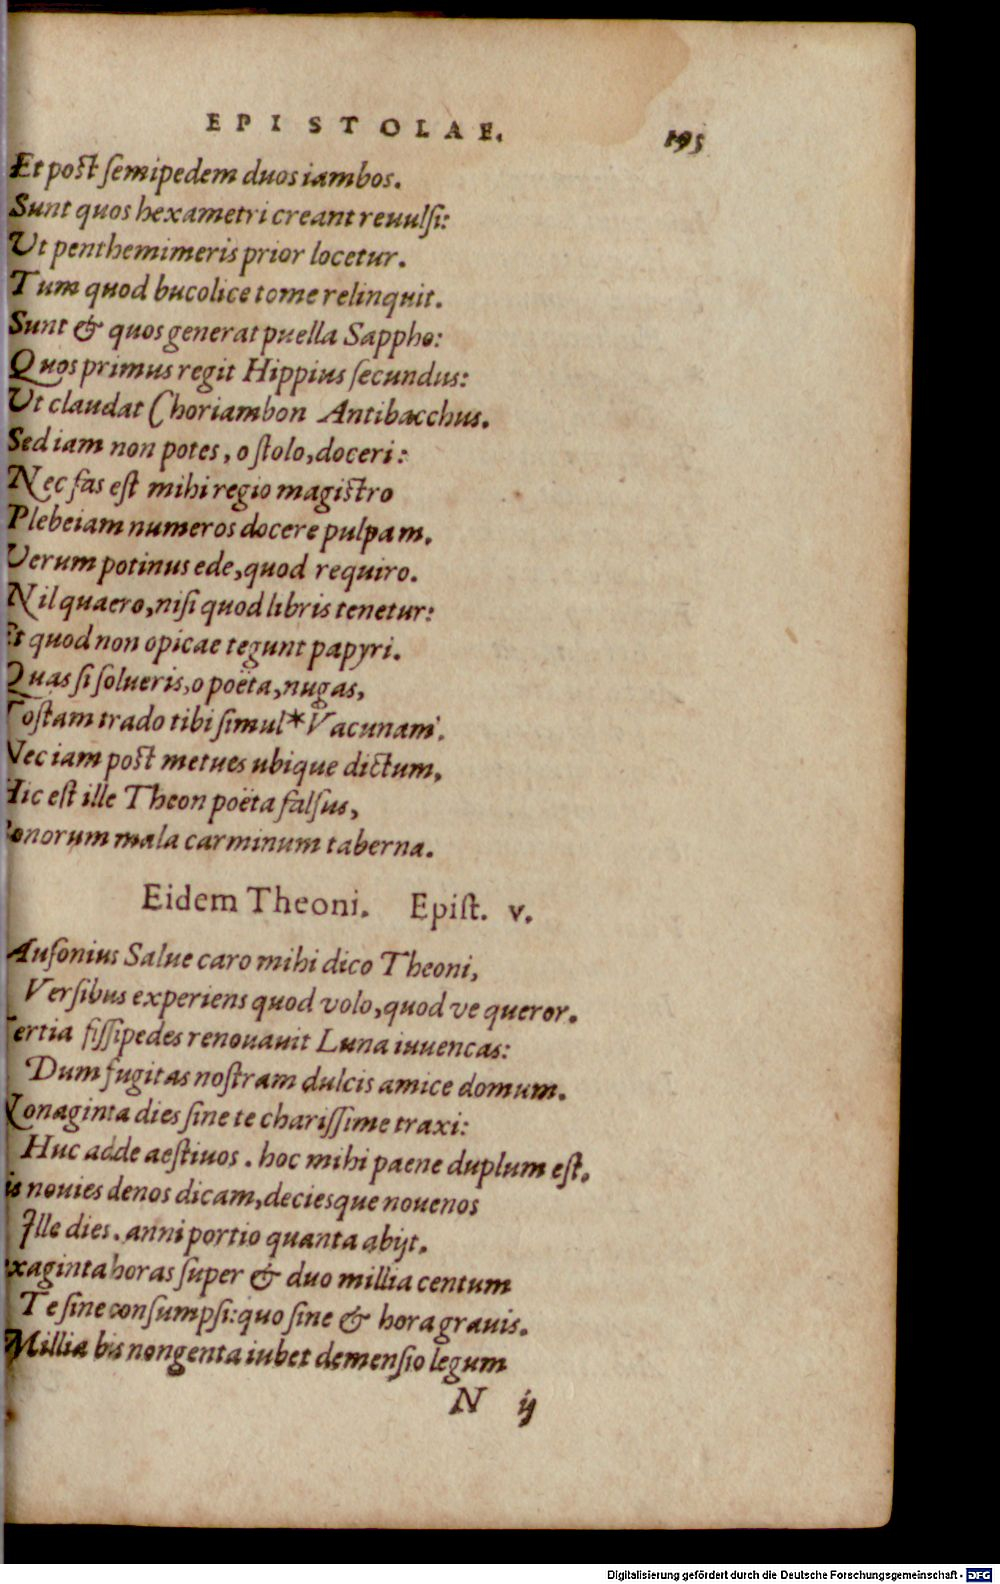 EPISTOLAE. 195
Et post semipedem duos iambos.
Sunt quos hexametri creant reuulsi:
Ut penthemimeris prior locetur.
Tum quod bucolice tome relinquit.
Sunt & quos generat puella Sappho:
Quos primus regit Hippius secundus:
Ut claudat Choriambon Antibacchus.
Sed iam non potes, o stolo, doceri:
Nec fas est mihi regio magistro
Plebeiam numeros docere pulpam.
Verum potinus ede, quod requiro.
Nil quaero, nisi quod libris tenetur:
Et quod non opicae tegunt papyri.
Quas si solueris, o poëta, nugas,
Tostam trado tibi simul* Vacunam.
Nec iam post metues ubique dictum,
Hic est ille Theon poëta falsus,
Bonorum mala carminum taberna.
Eidem Theoni. Epist. v.
Ausonius Salue caro mihi dico Theoni,
Versibus experiens quod volo, quod ve queror.
Tertia fissipedes renouauit Luna iuuencas:
Dum fugitas nostram dulcis amice domum.
Nonaginta dies sine te charissime traxi:
Huc adde aestiuos. hoc mihi paene duplum est.
is nouies denos dicam, deciesque nouenos
Ille dies. anni portio quanta abijt.
exaginta horas super & duo millia centum
Te sine consumpsi: quo sine & hora grauis.
Millia bis nongenta iubet demensio legum
N ij
Digitalisierung gefördert durch die Deutsche Forschungsgemeinschaft - DFG